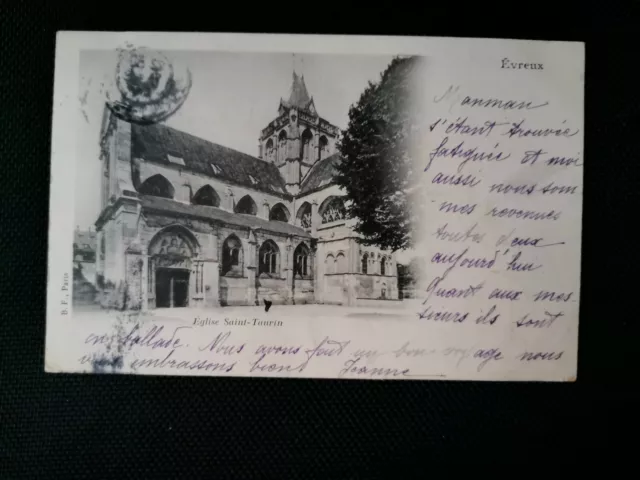 Évreux
Manman
s'étant trouvée
fatiguée et moi
aussi nous som
mes revenues
toutes deux
aujourd'hui
Quant aux mes-
sieurs ils sont
Église Saint-Taurin
B. F., Paris
en ballade. Nous avons fait un bon voyage nous
vous embrassons bient Jeanne